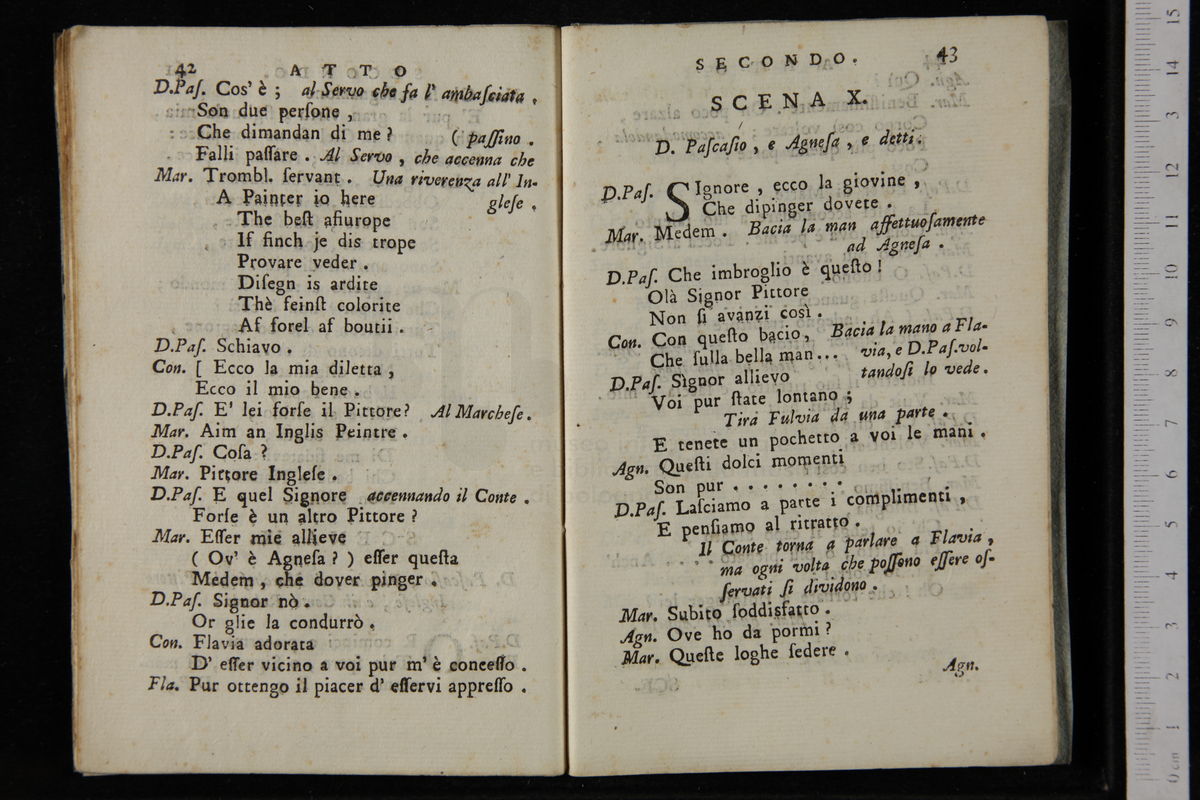 42 ATTO
D.Paſ. Cos' è ; al Servo che fa l' ambaſciata .
Son due perſone ,
Che dimandan di me ? ( paſſino .
Falli paſſare . Al Servo , che accenna che
Mar. Trombl. ſervant . Una riverenza all' In-
A Painter io here gleſe .
The beſt afiurope
If finch je dis trope
Provare veder .
Diſegn is ardite
Thè feinſt colorite
Af forel af boutii .
D.Paſ. Schiavo .
Con. [ Ecco la mia diletta ,
Ecco il mio bene .
D.Paſ. E' lei forſe il Pittore? Al Marcheſe .
Mar. Aim an Inglis Peintre .
D.Paſ. Coſa ?
Mar. Pittore Ingleſe .
D.Paſ. E quel Signore accennando il Conte .
Forſe è un altro Pittore ?
Mar. Eſſer mie allieve
( Ov' è Agneſa ? ) eſſer queſta
Medem , che dover pinger .
D.Paſ. Signor nò .
Or glie la condurrò .
Con. Flavia adorata
D' eſſer vicino a voi pur m' è conceſſo .
Fla. Pur ottengo il piacer d' eſſervi appreſſo .
SECONDO. 43
SCENA X.
D. Paſcaſio , e Agneſa , e detti .
D.Paſ. SIgnore , ecco la giovine ,
Che dipinger dovete .
Mar. Medem . Bacia la man affettuoſamente
ad Agneſa .
D.Paſ. Che imbroglio è queſto !
Olà Signor Pittore
Non ſi avanzi così .
Con. Con queſto bacio, Bacia la mano a Fla-
Che ſulla bella man... via, e D.Paſ.vol-
D.Paſ. Signor allievo tandoſi lo vede.
Voi pur ſtate lontano ;
Tira Fulvia da una parte .
E tenete un pochetto a voi le mani .
Agn. Queſti dolci momenti
Son pur . . . . . . . .
D.Paſ. Laſciamo a parte i complimenti ,
E penſiamo al ritratto .
Il Conte torna a parlare a Flavia ,
ma ogni volta che poſſono eſſere oſ-
ſervati ſi dividono .
Mar. Subito ſoddisfatto .
Agn. Ove ho da pormi ?
Mar. Queſte loghe ſedere .
Agn.
0 cm 1 2 3 4 5 6 7 8 9 10 11 12 13 14 15